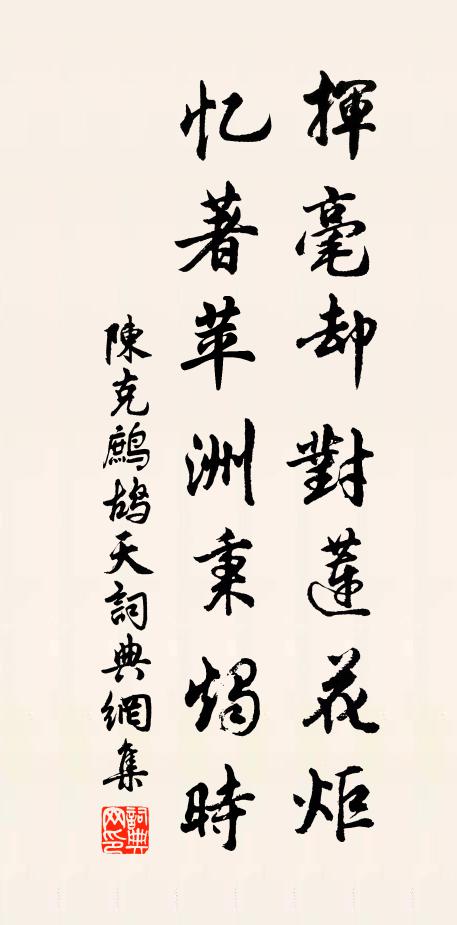 揮毫却對蓮花炬
忆著苹洲秉燭時
陳克鷓鴣天詞典網集
詞典网印